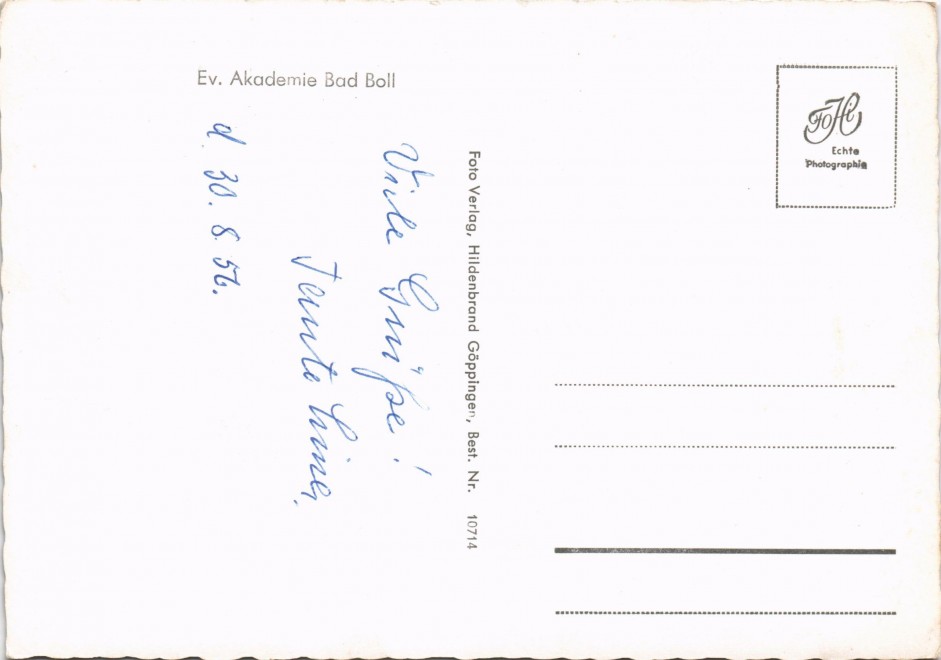 Ev. Akademie Bad Boll
Viele Grüße!
Tante Line,
d. 30. 8. 56.
Foto Verlag, Hildenbrand Göppingen, Best. Nr. 10714
FoHi
Echte
Photographie